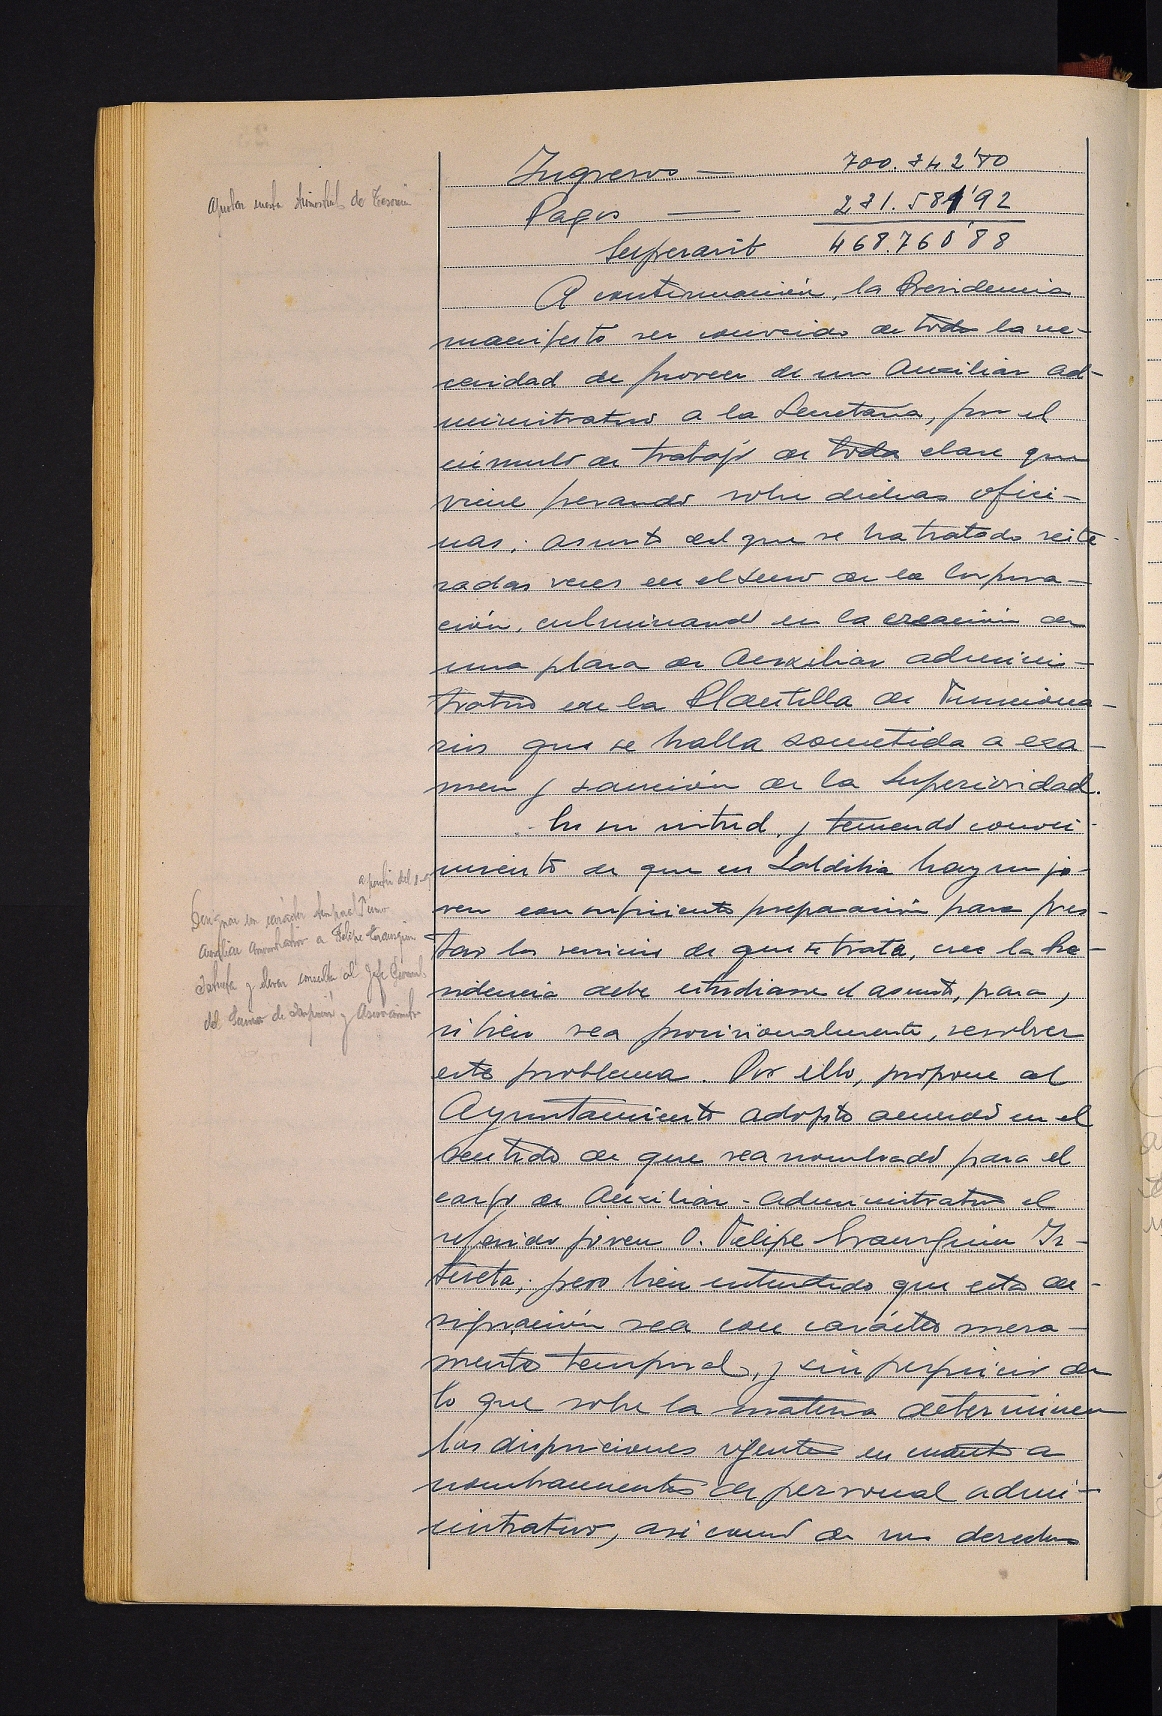 Ingresos — 700.342'80
Pagos — 231.581'92
Superavit 468.760'88
A continuación, la Presidencia
manifestó ser conocido de todos la ne-
cesidad de proveer de un Auxiliar ad-
ministrativo a la Secretaría, por el
cúmulo de trabajo de toda clase que
viene pesando sobre dichas ofici-
nas; asunto del que se ha tratado reite-
radas veces en el seno de la Corpora-
ción, culminando en la creación de
una plaza de Auxiliar adminis-
trativo en la Plantilla de Funciona-
rios que se halla sometida a exa-
men y sanción de la Superioridad.
En su virtud, y teniendo conoci-
miento de que en Saldibia hay un jo-
ven con suficiente preparación para pres-
tar los servicios de que se trata, cree la Pre-
sidencia debe estudiarse el asunto, para,
si bien sea provisionalmente, resolver
este problema. Por ello, propone al
Ayuntamiento adopte acuerdo en el
sentido de que sea nombrado para el
cargo de Auxiliar-administrativo el
referido joven D. Felipe
pero bien entendido que esta de-
signación sea con carácter mera-
mente temporal, y sin perjuicio de
lo que sobre la materia determinen
las disposiciones vigentes en cuanto a
nombramientos de personal admi-
nistrativo, así como de sus derechos
Aprobar cuenta trimestral de Tesorería
a partir del
Designar con carácter temporal
Auxiliar Administrativo a Felipe
y elevar consulta al Jefe
del Servicio de Inspección y Asesoramiento